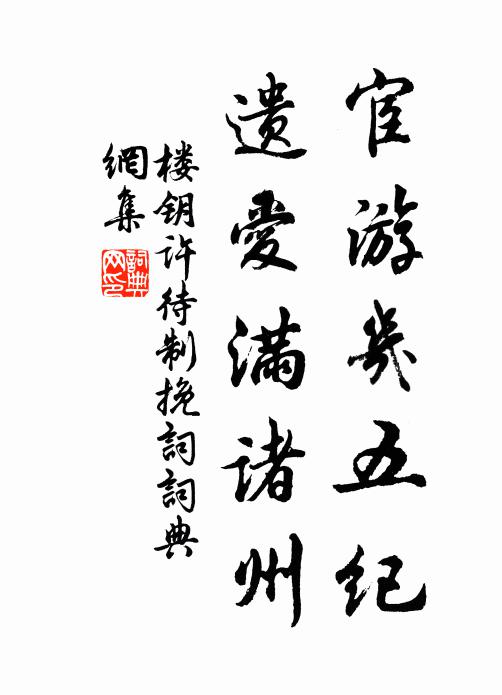 宦游幾五紀
遺愛滿諸州
楼钥许待制挽詞詞典
網集
詞典网印